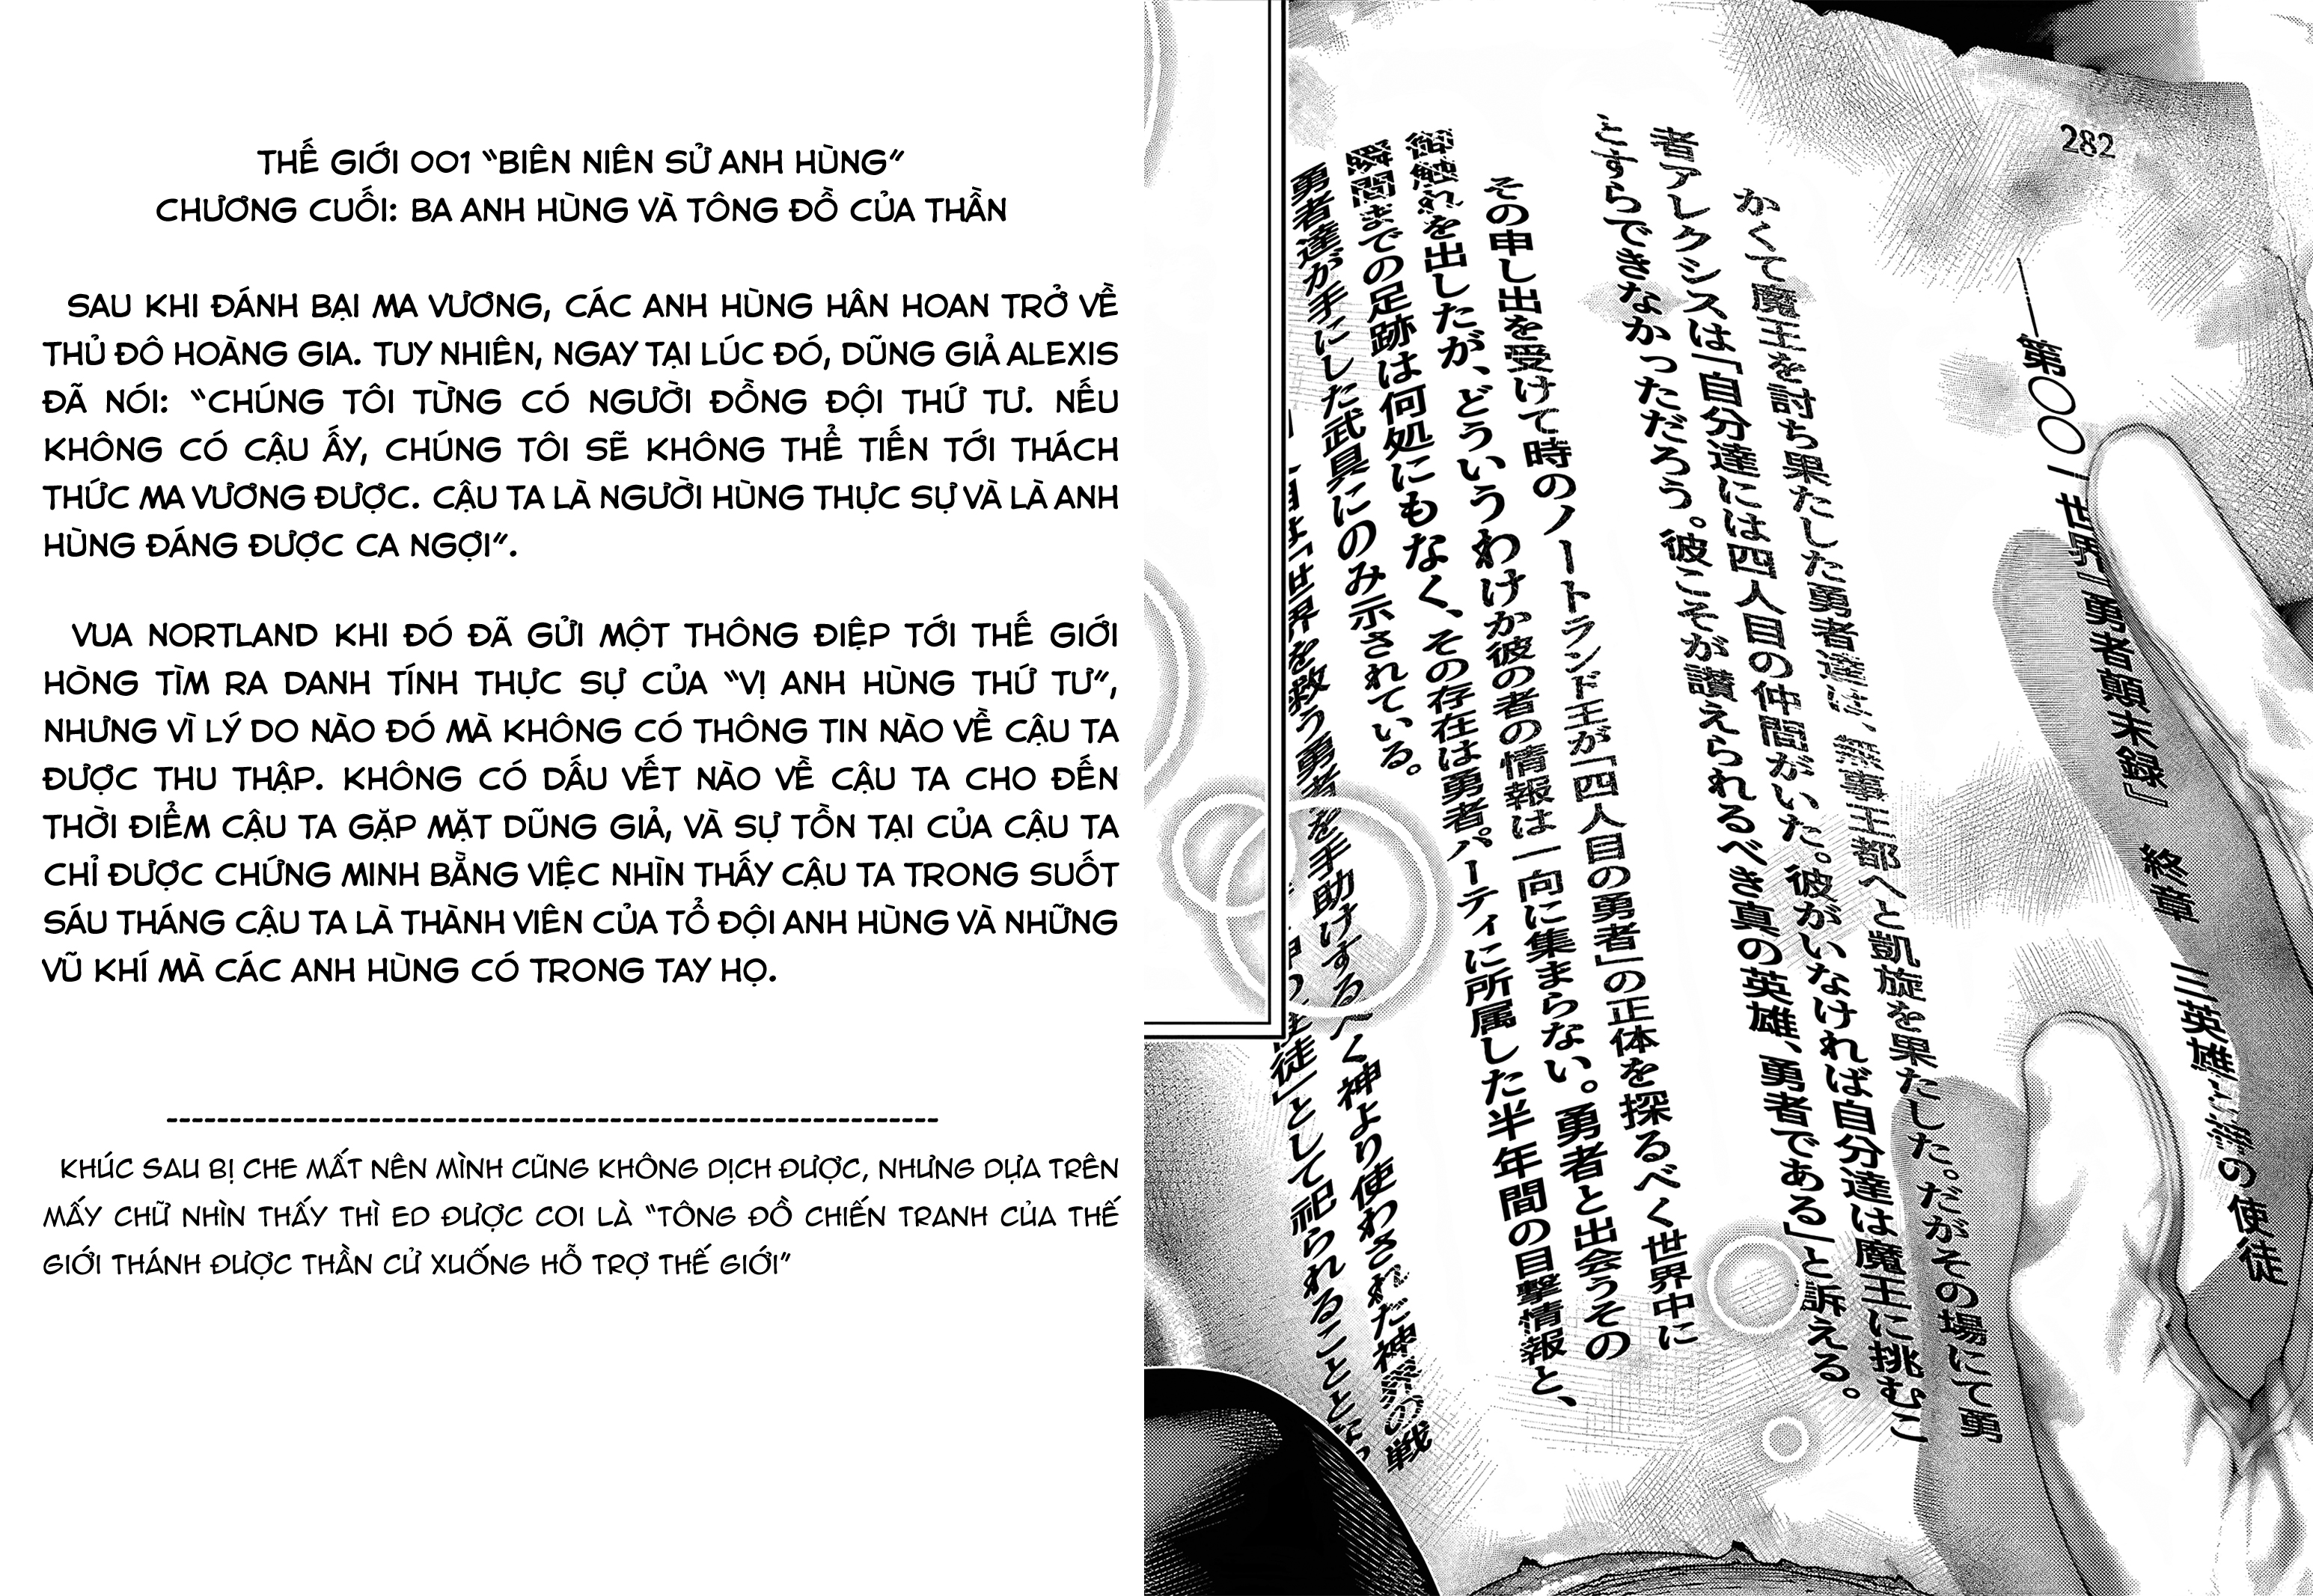 THẾ GIỚI 001 “BIÊN NIÊN SỬ ANH HÙNG”
CHƯƠNG CUỐI: BA ANH HÙNG VÀ TÔNG ĐỒ CỦA THẦN
SAU KHI ĐÁNH BẠI MA VƯƠNG, CÁC ANH HÙNG HÂN HOAN TRỞ VỀ
THỦ ĐÔ HOÀNG GIA. TUY NHIÊN, NGAY TẠI LÚC ĐÓ, DŨNG GIẢ ALEXIS
ĐÃ NÓI: “CHÚNG TÔI TỪNG CÓ NGƯỜI ĐỒNG ĐỘI THỨ TƯ. NẾU
KHÔNG CÓ CẬU ẤY, CHÚNG TÔI SẼ KHÔNG THỂ TIẾN TỚI THÁCH
THỨC MA VƯƠNG ĐƯỢC. CẬU TA LÀ NGƯỜI HÙNG THỰC SỰ VÀ LÀ ANH
HÙNG ĐÁNG ĐƯỢC CA NGỢI”.
VUA NORTLAND KHI ĐÓ ĐÃ GỬI MỘT THÔNG ĐIỆP TỚI THẾ GIỚI
HÒNG TÌM RA DANH TÍNH THỰC SỰ CỦA “VỊ ANH HÙNG THỨ TƯ”,
NHƯNG VÌ LÝ DO NÀO ĐÓ MÀ KHÔNG CÓ THÔNG TIN NÀO VỀ CẬU TA
ĐƯỢC THU THẬP. KHÔNG CÓ DẤU VẾT NÀO VỀ CẬU TA CHO ĐẾN
THỜI ĐIỂM CẬU TA GẶP MẶT DŨNG GIẢ, VÀ SỰ TỒN TẠI CỦA CẬU TA
CHỈ ĐƯỢC CHỨNG MINH BẰNG VIỆC NHÌN THẤY CẬU TA TRONG SUỐT
SÁU THÁNG CẬU TA LÀ THÀNH VIÊN CỦA TỔ ĐỘI ANH HÙNG VÀ NHỮNG
VŨ KHÍ MÀ CÁC ANH HÙNG CÓ TRONG TAY HỌ.
KHÚC SAU BỊ CHE MẤT NÊN MÌNH CŨNG KHÔNG DỊCH ĐƯỢC, NHƯNG DỰA TRÊN
MẤY CHỮ NHÌN THẤY THÌ ED ĐƯỢC COI LÀ “TÔNG ĐỒ CHIẾN TRANH CỦA THẾ
GIỚI THÁNH ĐƯỢC THẦN CỬ XUỐNG HỖ TRỢ THẾ GIỚI”
282
――第〇〇一世界『勇者顛末録』 終章 三英雄と神の使徒
かくて魔王を討ち果たした勇者達は、無事王都へと凱旋を果たした。だがその場にて勇
者アレクシスは「自分達には四人目の仲間がいた。彼がいなければ自分達は魔王に挑むこ
とすらできなかっただろう。彼こそが讃えられるべき真の英雄、勇者である」と訴える。
その申し出を受けて時のノートランド王が「四人目の勇者」の正体を探るべく世界中に
御触れを出したが、どういうわけか彼の者の情報は一向に集まらない。勇者と出会うその
瞬間までの足跡は何処にもなく、その存在は勇者パーティに所属した半年間の目撃情報と、
勇者達が手にした武具にのみ示されている。
は「世界を救う勇者を手助けするべく神より使わされた神界の戦
徒」として祀られることとなっ